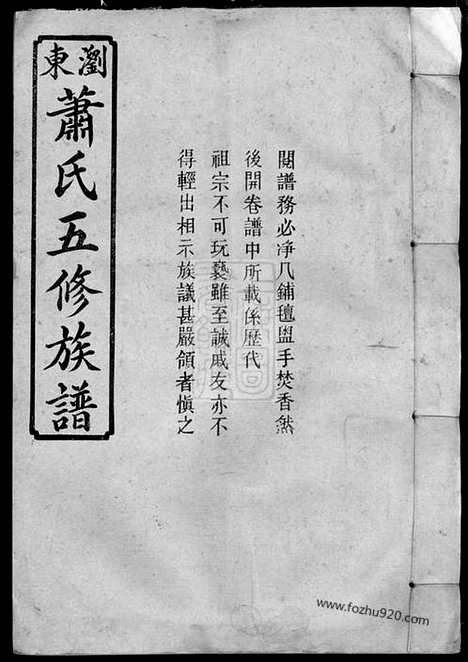 瀏東
蕭氏五修族譜
閱譜務必凈几鋪氊盥手焚香然
後開卷譜中所載係歷代
祖宗不可玩褻雖至誠戚友亦不
得輕出相示族議甚嚴領者愼之
www.fozhu920.com